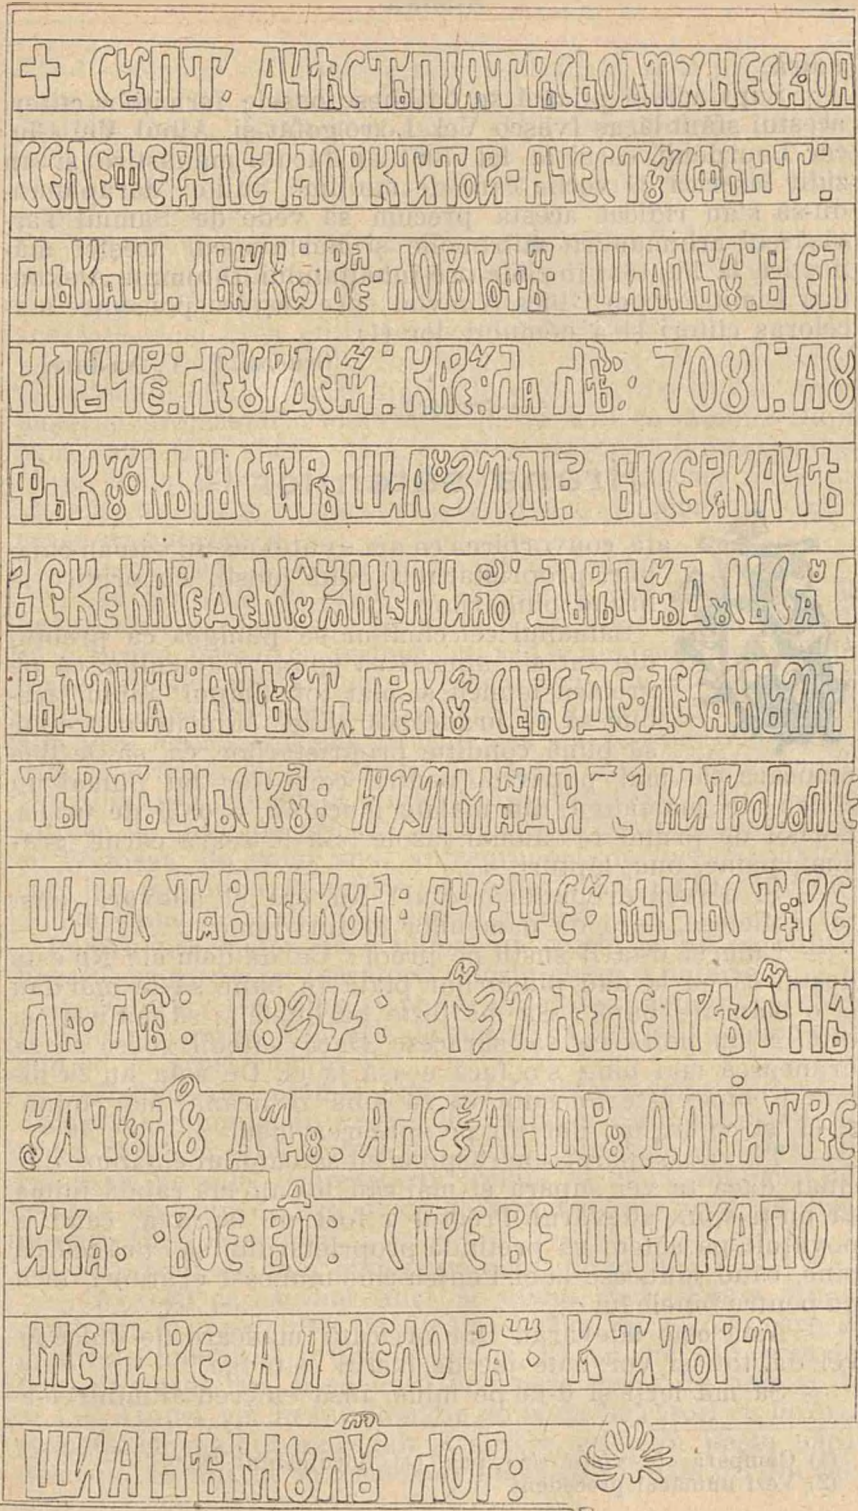 + СꙊПТ. АЧѢСТЪ ПІАТРЪ СЪ ОДИХНЕСК. ОА
СЕЛЕ ФЕРИЧІЦІЛОР КТИТОРИ. АЧЕСТꙊИ СФЬНТ:
ЛЪКАШ. ІВАШКѠ: ВЕЛ. ЛОГОФѢТ. ШИ АЛБꙊЛ: ВЕЛ
КЛꙊЧЕР: ЛЕꙊРДЕНИ: КАРЕИ: ЛА ЛѢТ: 7081: АꙊ
ФЪКꙊТ МЪНЪСТИРѢ ШИ АꙊ ЗИДІТ БІСЕРИКА ЧѢ
ВЕКЕ КАРЕ ДЕ МꙊЛЦИМѢ АНИЛОР ДЪРЪПЪНИДꙊСЪ САꙊ
РЪДИКАТ: АЧѢСТА ПРЕКꙊМ СЪ ВЕДЕ. ДЕ САМꙊИЛ
ТЪРТЪШЪСКꙊЛ: АРХИМАНДРИТ МИТРОПОЛІЕ
ШИ НЪСТАВНІКꙊЛ: АЧЕЩЕИ: МЪНЪСТИРЕ
ЛА. ЛѢТ: 1834: ꙞН ЗИЛІЛЕ ПРѢꙞНЪ
ЛЦАТꙊЛꙊИ ДОМНꙊ. АЛЕѮАНДРꙊ ДИМИТРІЕ
ГИКА. ВОЕВОД: СПРЕ ВЕШНИКА ПО
МЕНИРЕ. А АЧЕЛОРАШ: КТИТОРИ
ШИ А НѢМꙊЛꙊИ ЛОР: